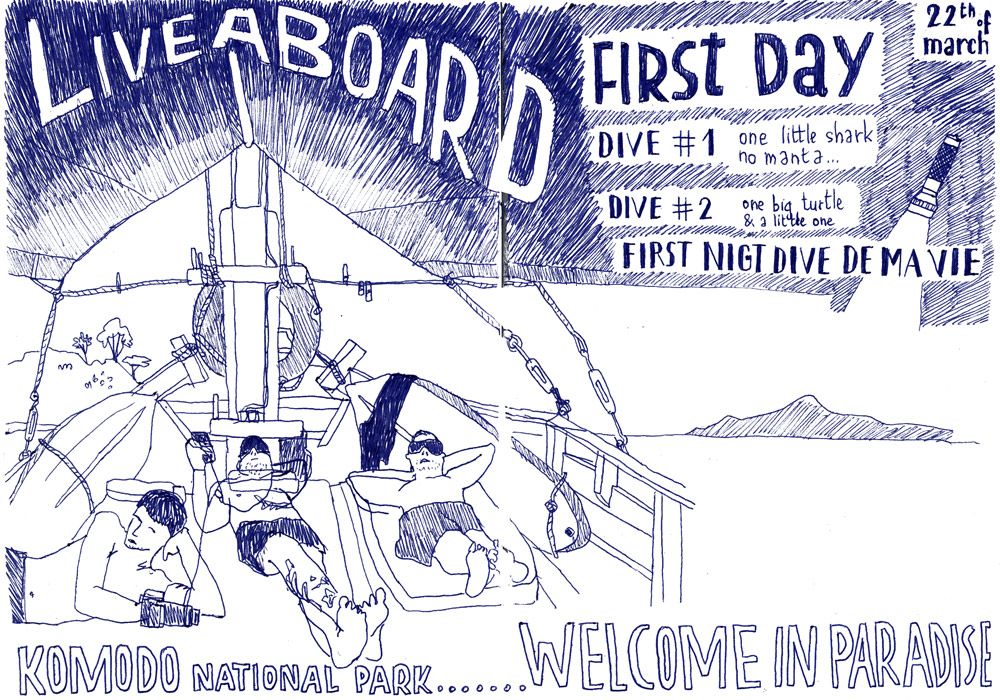 LIVEABOARD
FIRSt Day
22th of
march
DIVE #1
one little shark
no manta...
DIVE #2
one big turtle
& a little one
FIRST NIGT DIVE DE MA VIE
KOMODO NATIONAL PARK.......WELCOME IN PARADISE